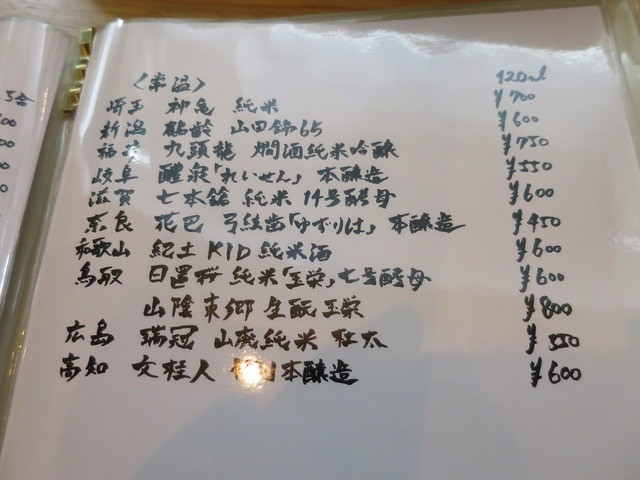 〈常温〉 120ml
埼玉 神亀 純米 ¥700
新潟 鶴齢 山田錦65 ¥600
福井 九頭龍 燗酒純米吟醸 ¥750
岐阜 醴泉「れいせん」 本醸造 ¥550
滋賀 七本鎗 純米 14号酵母 ¥600
奈良 花巴 弓絃歯「ゆずりは」 本醸造 ¥450
和歌山 紀土 KID 純米酒 ¥600
鳥取 日置桜 純米「玉栄」七号酵母 ¥600
山陰東郷 生酛 玉栄 ¥800
広島 瑞冠 山廃純米 ¥550
高知 文佳人 本醸造 ¥600